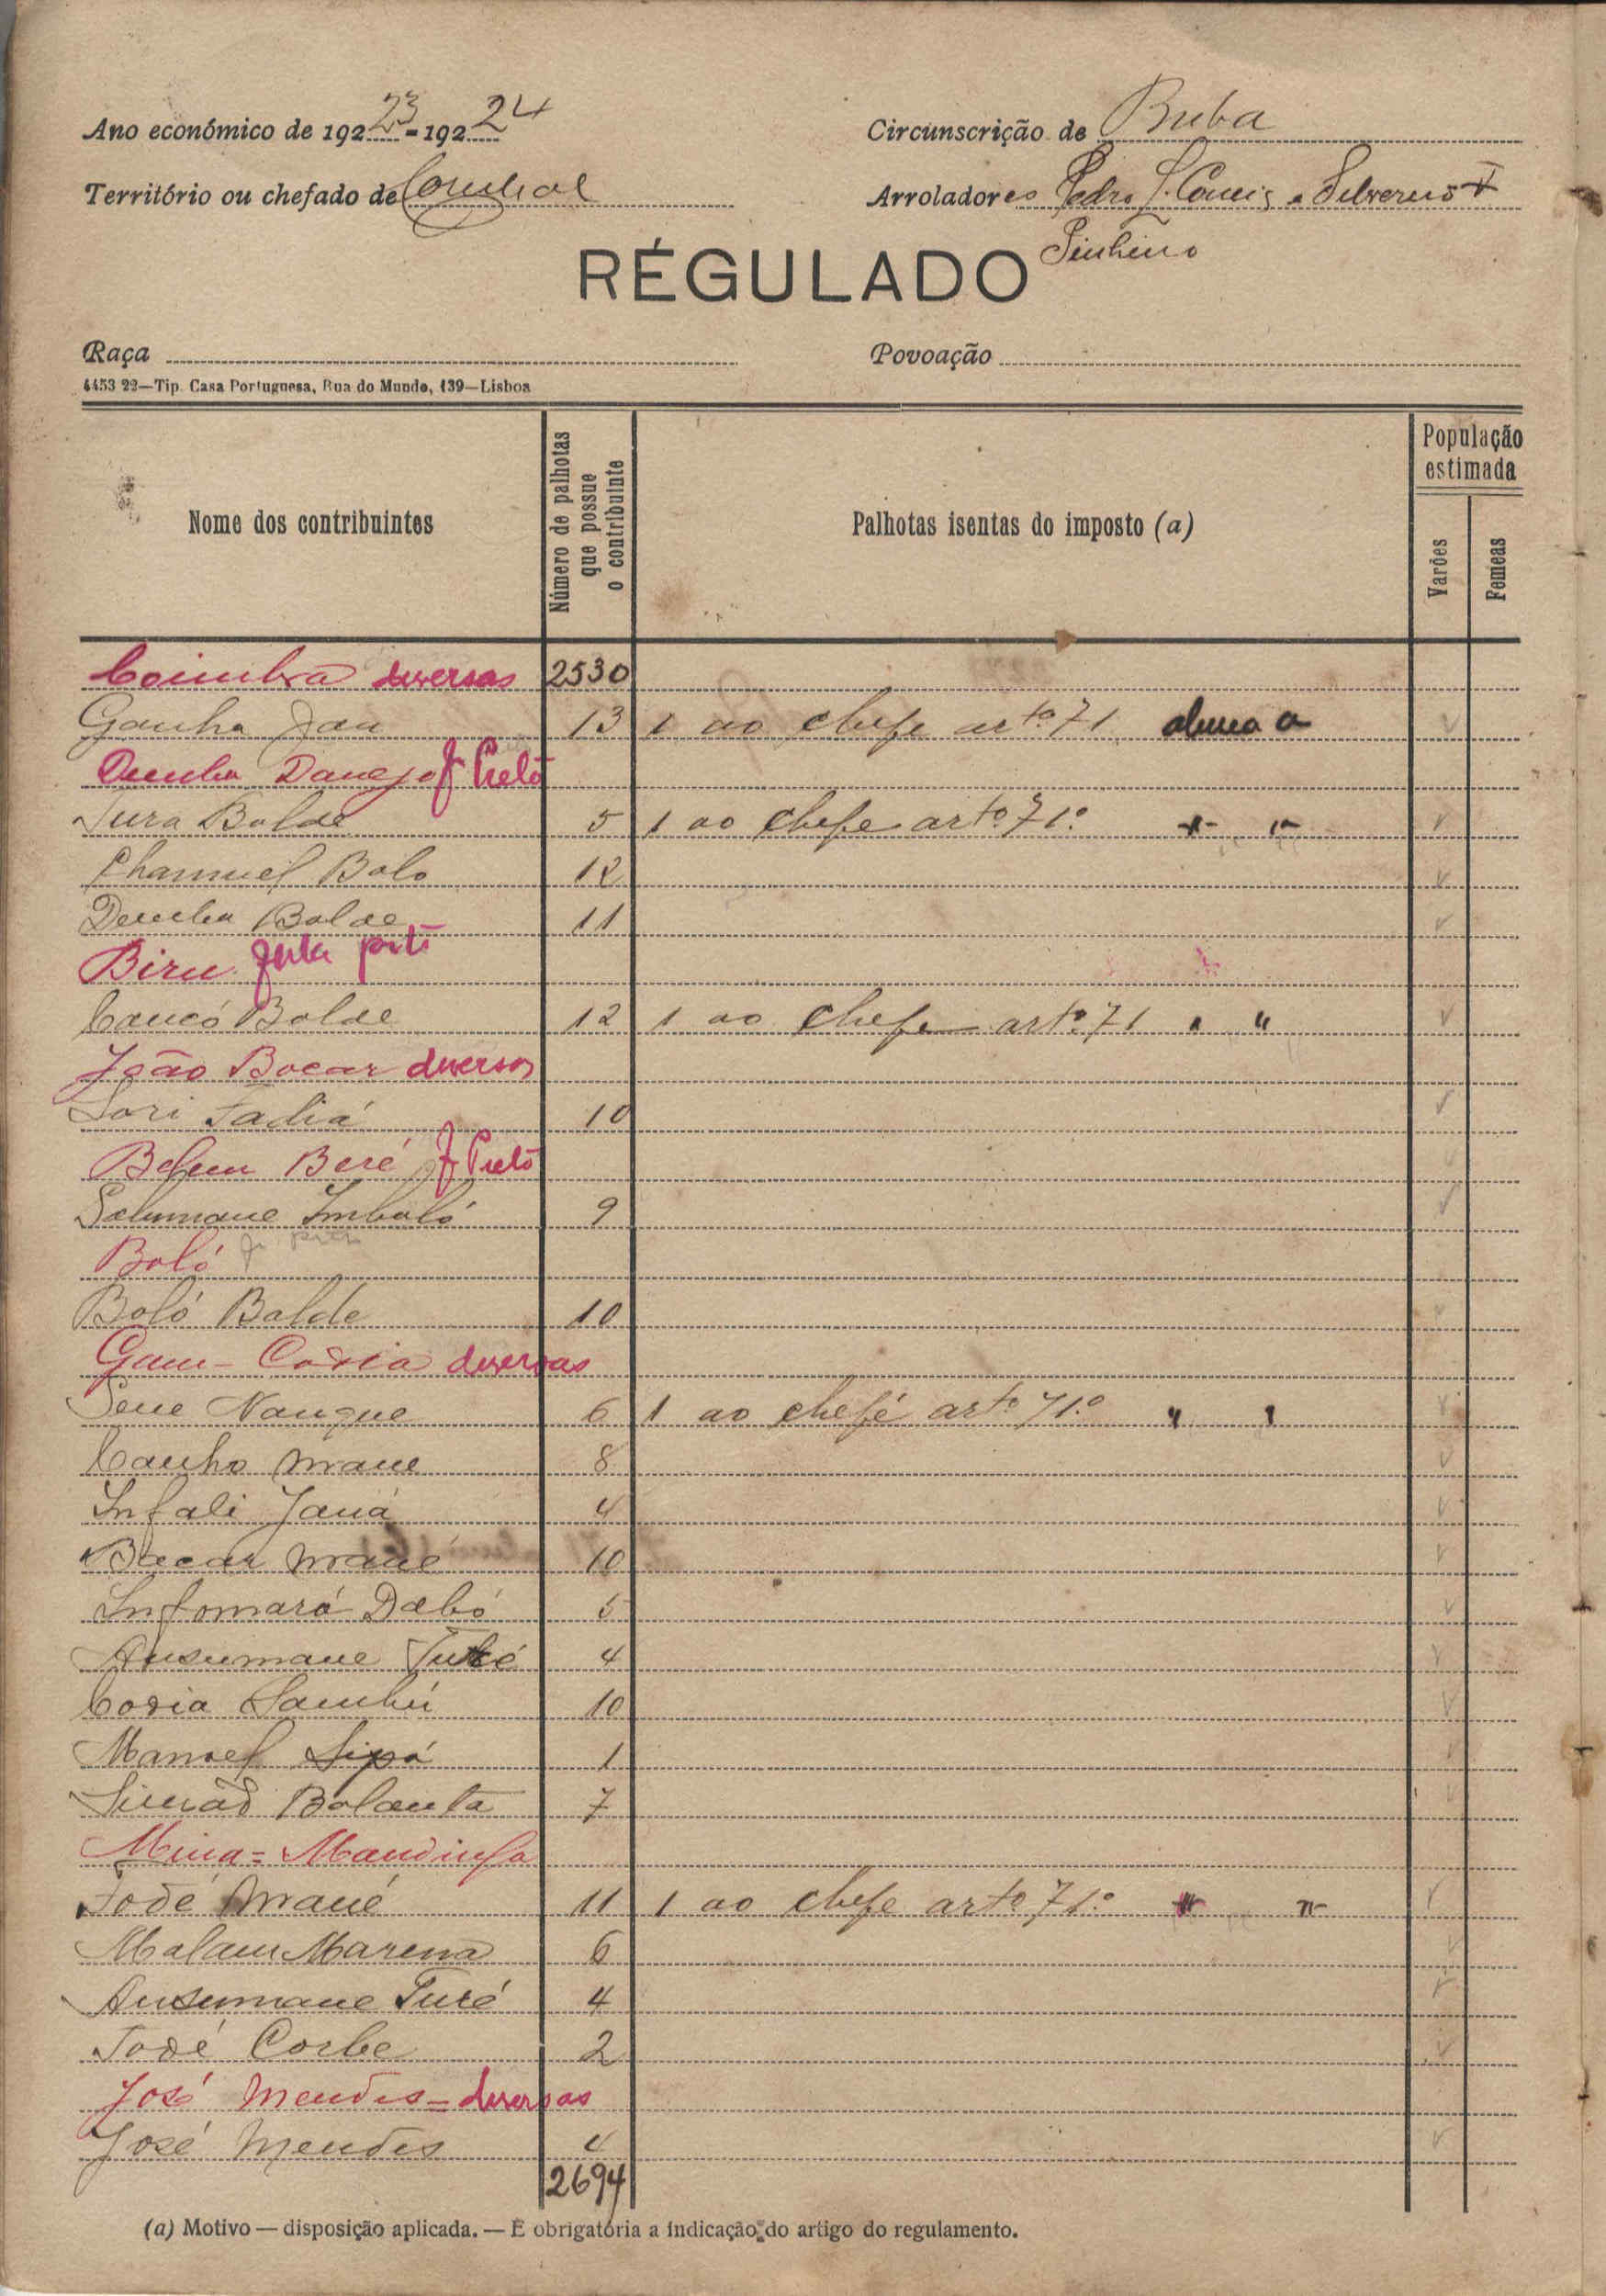 Ano económico de 1923-1924
Circunscrição de Buba
Território ou chefado de Corubal
Arroladores Pedro e Pinheiro
RÉGULADO
Raça
Povoação
4453 22—Tip. Casa Portuguesa, Rua do Mundo, 139—Lisboa
Nome dos contribuintes
Número de palhotas que possue o contribuinte
Palhotas isentas do imposto (a)
População estimada
Varões
Femeas
Coimbra diversas 2530
Ganha Jau 13 1 ao chefe artº 71 alinea a
Demba Danejo F. Preto
Tura Balde 5 1 ao chefe artº 71º " "
Bolo 12
Demba Balde 11
Biru Fula preto
Caucó Balde 12 1 ao chefe artº 71 " "
João Bocar diversos
Sori Jadiá 10
Beré F. Preto
Salumane Imbaló 9
Boló F. preto
Boló Balde 10
Gam-Cossia diversas
Sene Nanque 6 1 ao chefe artº 71º " "
Canho Mané 8
Infali Janá 4
Bacar Mané 10
Infomará Dabó 5
Ansumane Turé 4
Cossia Sambú 10
Manoel Sipá 1
Balanta 7
Mina=Mandinga
Fodé Mané 11 1 ao chefe artº 71º " "
Malam Marena 6
Ansumane Turé 4
Fodé Corbe 2
José Mendes=diversas
José Mendes 4
2694
(a) Motivo — disposição aplicada. — É obrigatória a indicação do artigo do regulamento.